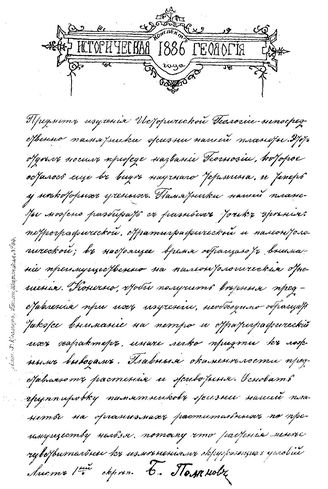 Конспектъ
ИСТОРИЧЕСКАЯ 1886 ГЕОЛОГІЯ
года
Предметъ изученія Исторической Геологіи непосред-
ственно памятники жизни нашей планеты. Этотъ
отдѣлъ носилъ прежде названіе Геогнозіи, которое
осталось еще въ видѣ научнаго термина, и теперь
у некоторыхъ ученыхъ. Памятники нашей плане-
ты можно разбирать съ разныхъ точекъ зрѣнія:
петрографической, стратиграфической и палеонто-
логической; въ настоящее время обращаютъ внима-
ніе преимущественно на палеонтологическія отно-
шенія. Конечно, чтобы получить вѣрныя пред-
ставленія при ихъ изученіи, необходимо обращать
также вниманіе на петро и стратиграфическій
ихъ характеръ, иначе легко придти къ лож-
нымъ выводамъ. Главныя окаменѣлости пред-
ставляютъ растенія и животныя. Основать
группировку памятниковъ жизни нашей пла-
неты на организмахъ растительныхъ по пре-
имуществу нельзя, потому что растенія менѣе
чувствительны къ измѣненіямъ окружающихъ условій
Листъ 1ый Б. Полѣновъ